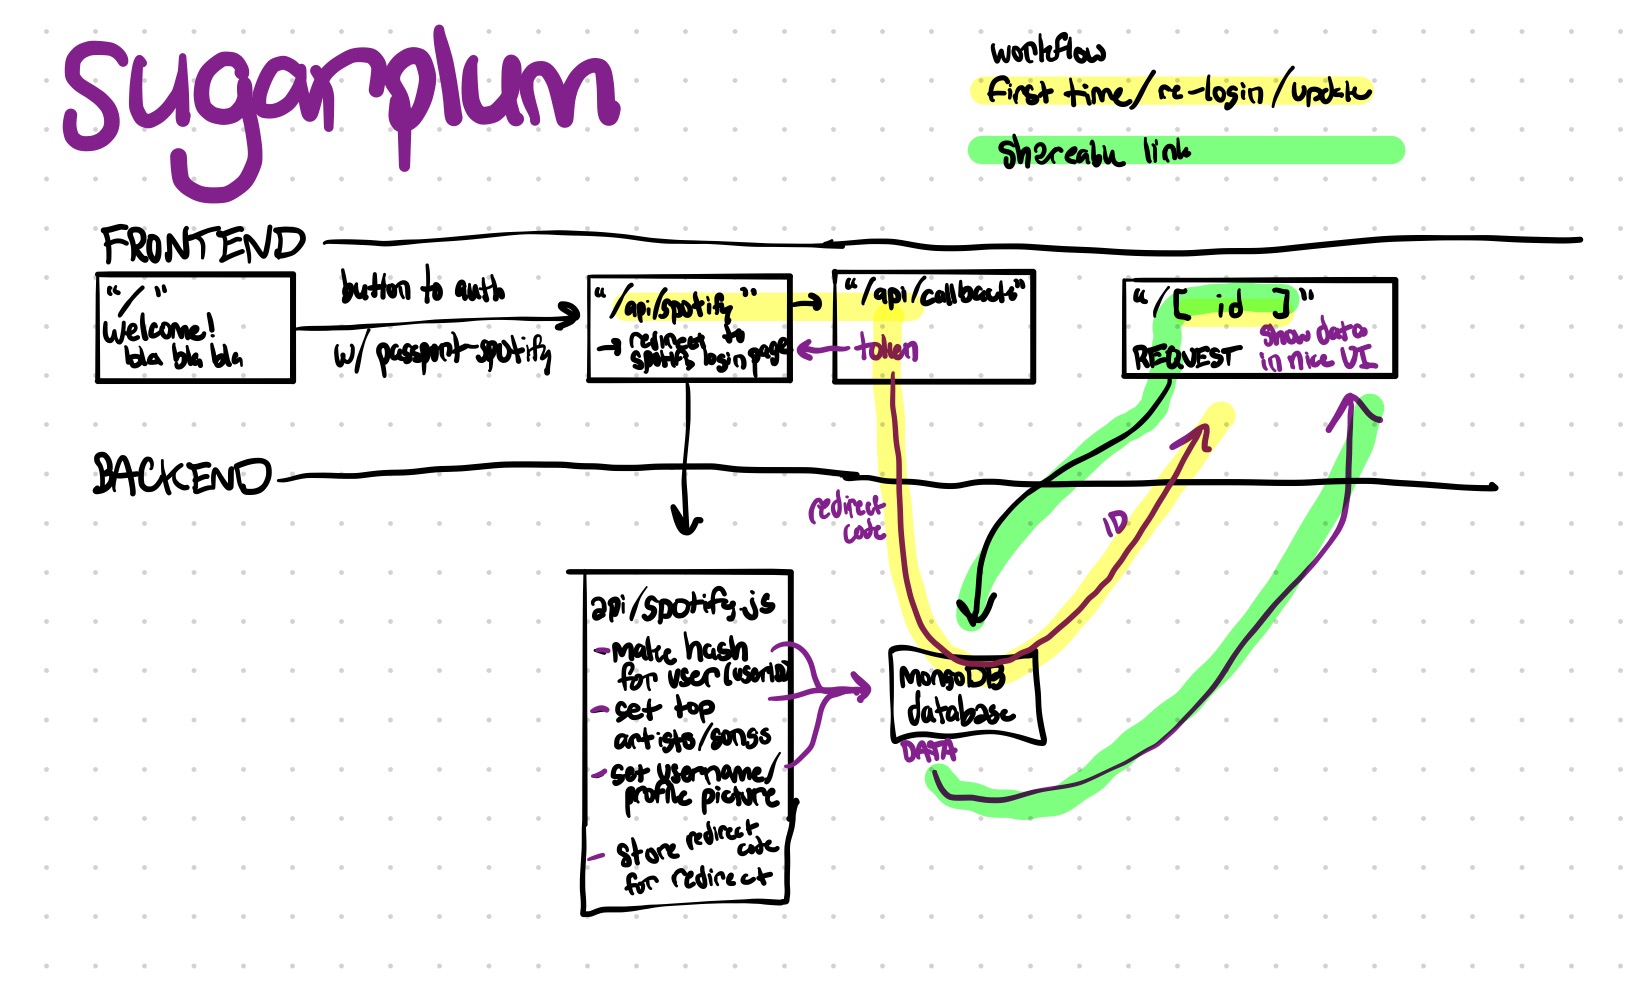 sugarplum
workflow
first time/re-login/update
shareable link
FRONTEND
"/"
welcome!
bla bla bla
button to auth
w/ passport-spotify
"/api/spotify"
→ redirect to
spotify login page
"/api/callback"
token
"/[ id ]"
REQUEST
show data
in nice UI
BACKEND
redirect
code
ID
api/spotify.js
- make hash
for user (userID)
- set top
artists/songs
- set username/
profile picture
- store redirect
code
for redirect
MongoDB
database
DATA